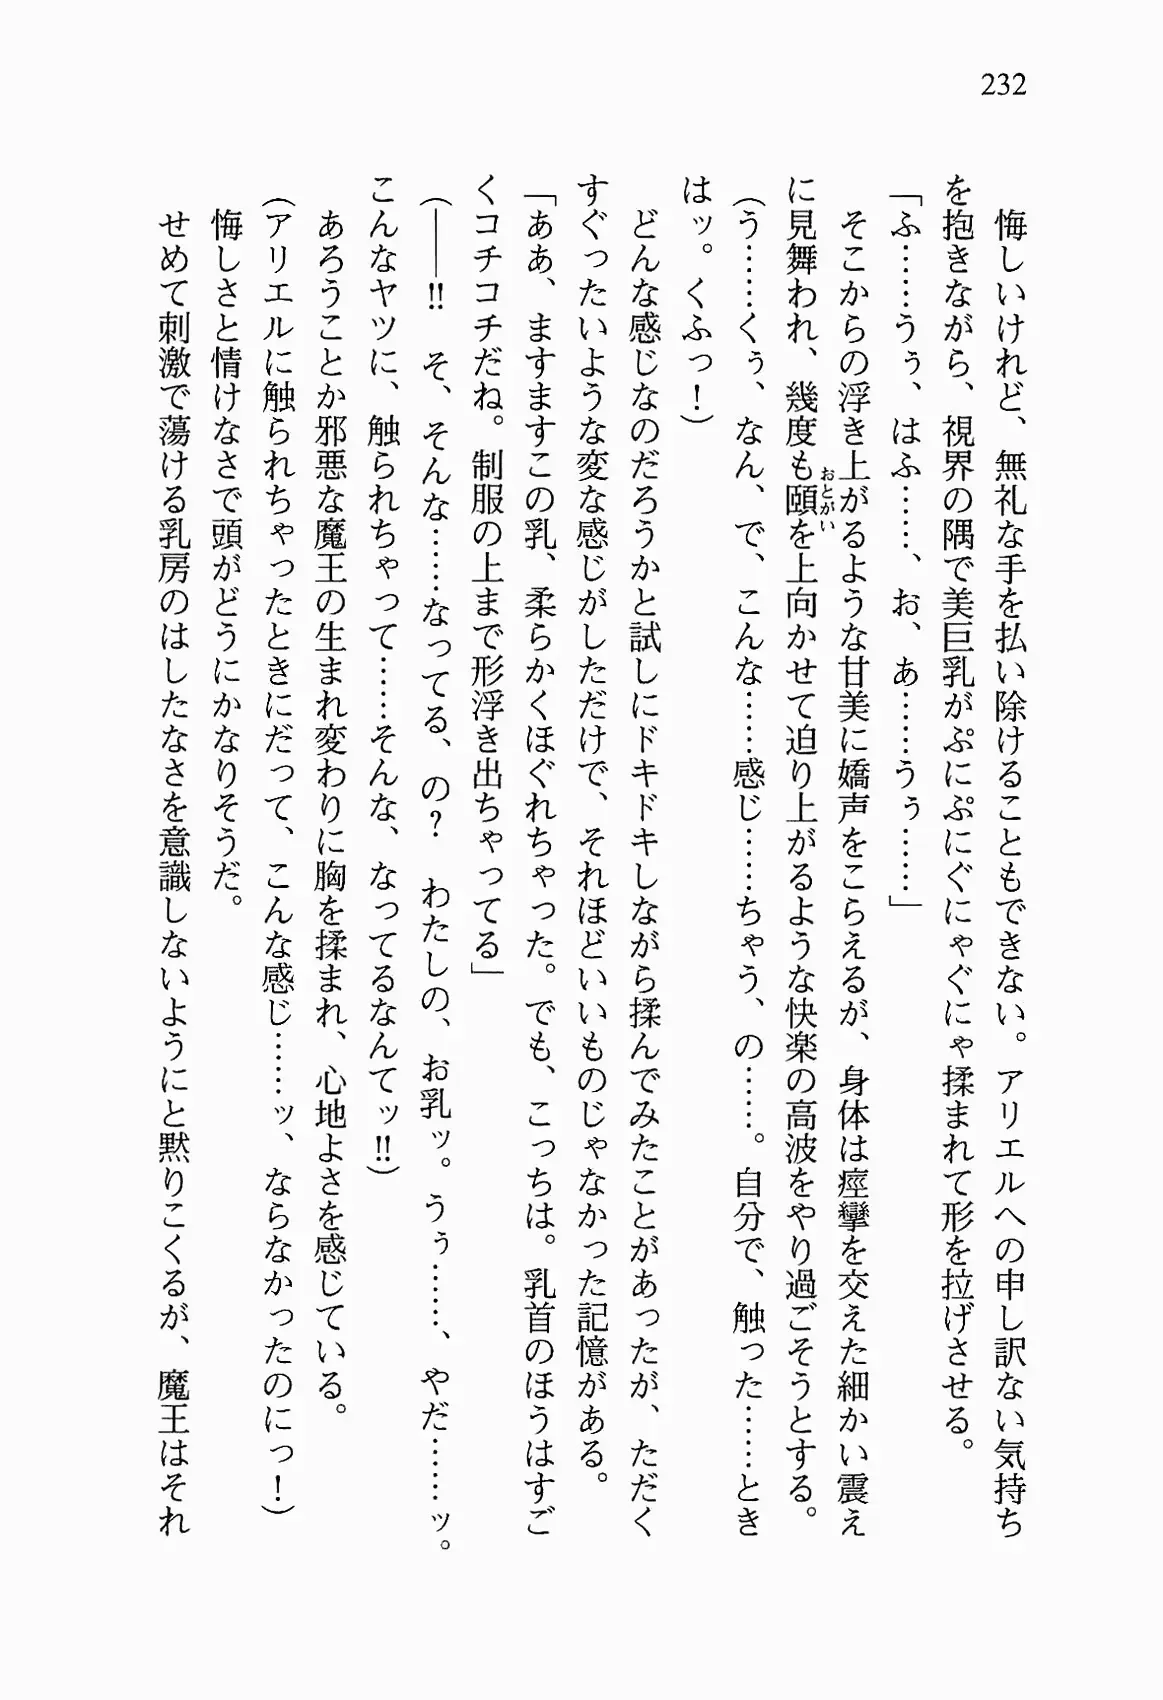 232
悔しいけれど、無礼な手を払い除けることもできない。アリエルへの申し訳ない気持ち
を抱きながら、視界の隅で美巨乳がぷにぷにぐにゃぐにゃ揉まれて形を拉げさせる。
「ふ……うぅ、はふ……、お、あ……うぅ……」
そこからの浮き上がるような甘美に嬌声をこらえるが、身体は痙攣を交えた細かい震え
に見舞われ、幾度も頤おとがいを上向かせて迫り上がるような快楽の高波をやり過ごそうとする。
（う……くぅ、なん、で、こんな……感じ……ちゃう、の……。自分で、触った……とき
はッ。くふっ！）
どんな感じなのだろうかと試しにドキドキしながら揉んでみたことがあったが、ただく
すぐったいような変な感じがしただけで、それほどいいものじゃなかった記憶がある。
「ああ、ますますこの乳、柔らかくほぐれちゃった。でも、こっちは。乳首のほうはすご
くコチコチだね。制服の上まで形浮き出ちゃってる」
（――!!　そ、そんな……なってる、の？　わたしの、お乳ッ。うぅ……、やだ……ッ。
こんなヤツに、触られちゃって……そんな、なってるなんてッ!!）
あろうことか邪悪な魔王の生まれ変わりに胸を揉まれ、心地よさを感じている。
（アリエルに触られちゃったときにだって、こんな感じ……ッ、ならなかったのにっ！）
悔しさと情けなさで頭がどうにかなりそうだ。
せめて刺激で蕩ける乳房のはしたなさを意識しないようにと黙りこくるが、魔王はそれ